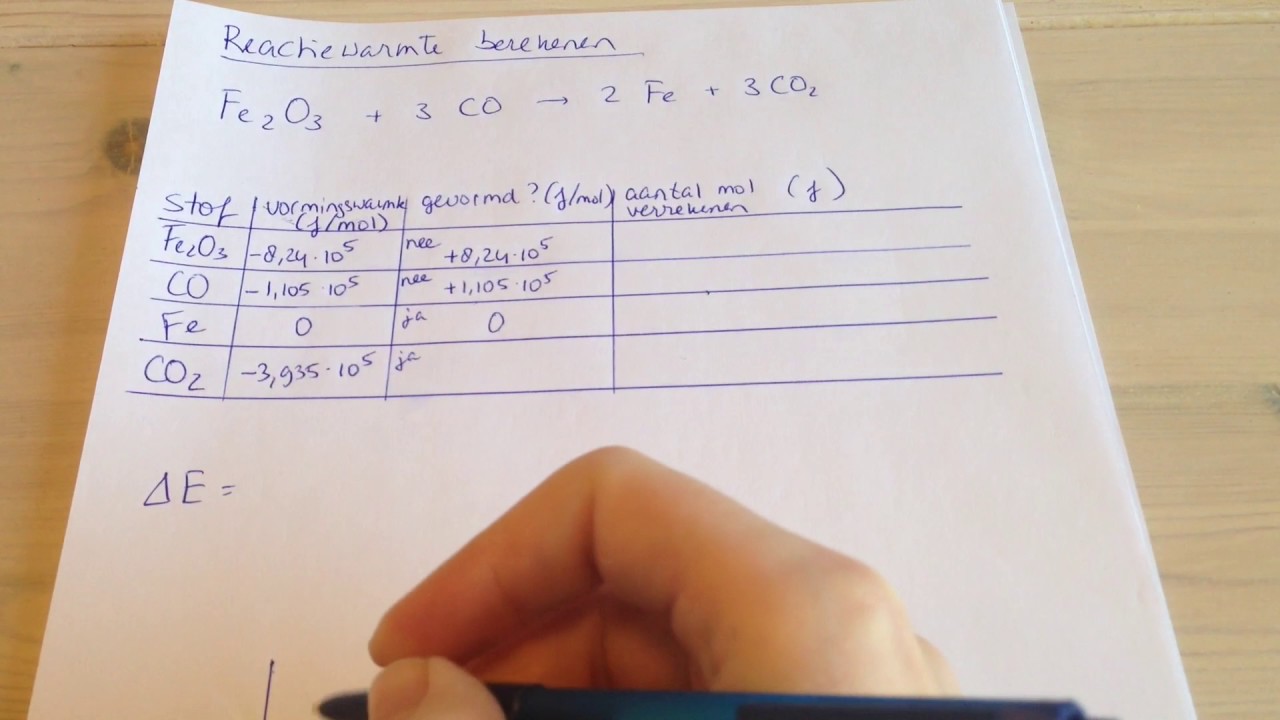 Reactiewarmte berekenen
Fe₂O₃ + 3 CO → 2 Fe + 3 CO₂
Stof vormingswarmte (J/mol) gevormd? (J/mol) aantal mol verrekenen (J)
Fe₂O₃ -8,24·10⁵ nee +8,24·10⁵
CO -1,105·10⁵ nee +1,105·10⁵
Fe 0 ja 0
CO₂ -3,935·10⁵ ja
ΔE =